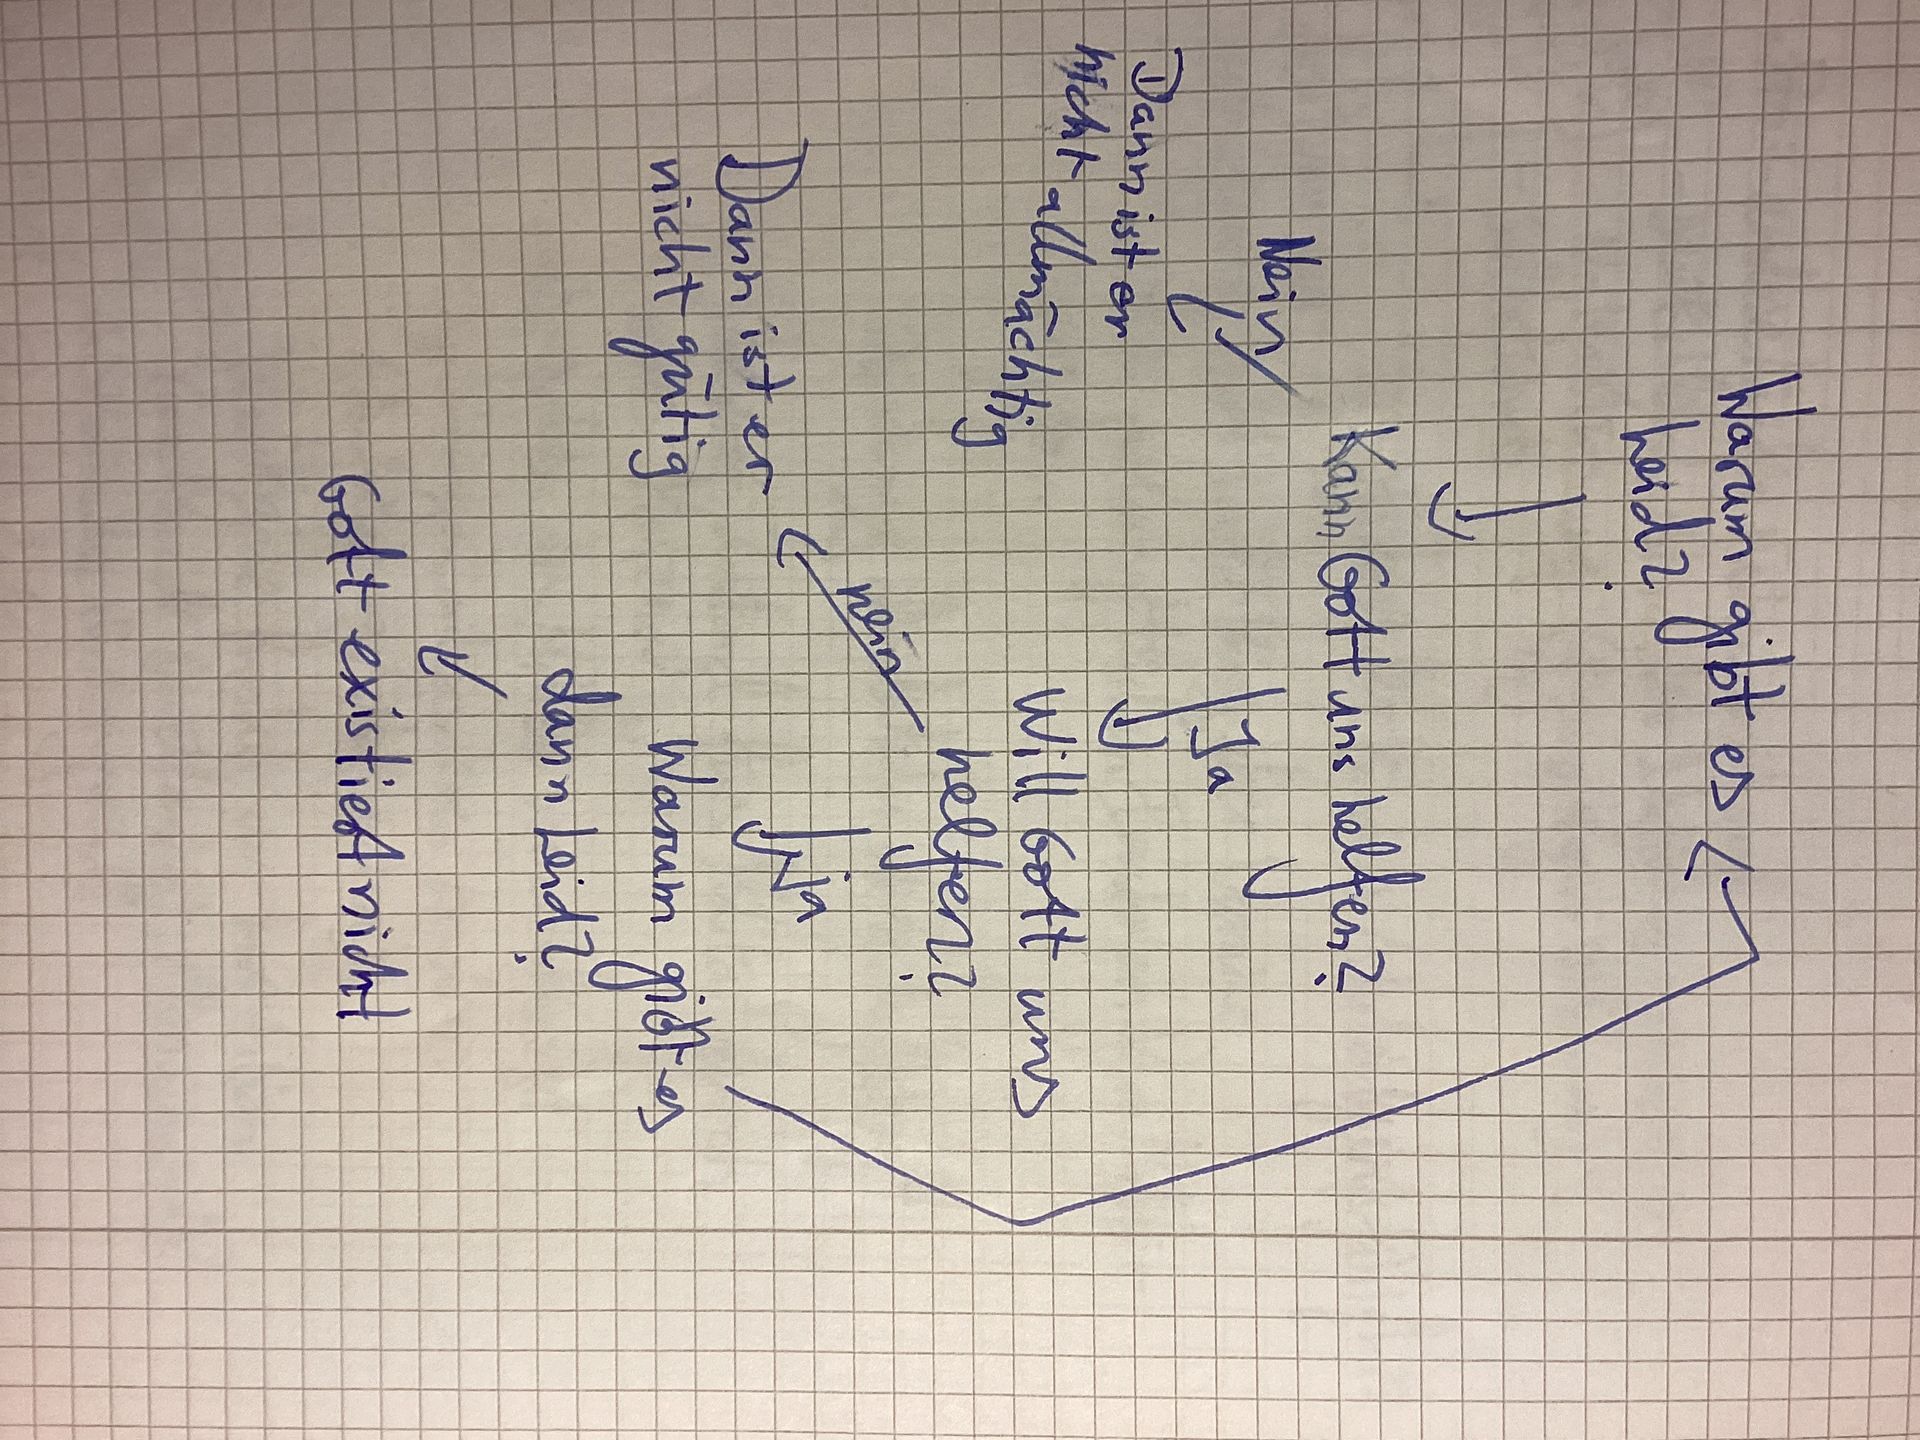 Warum gibt es
Leid?
Kann Gott uns helfen?
Nein
Ja
Dann ist er
nicht allmächtig
Will Gott uns
helfen?
nein
Ja
Dann ist er
nicht gütig
Warum gibt es
dann Leid?
Gott existiert nicht